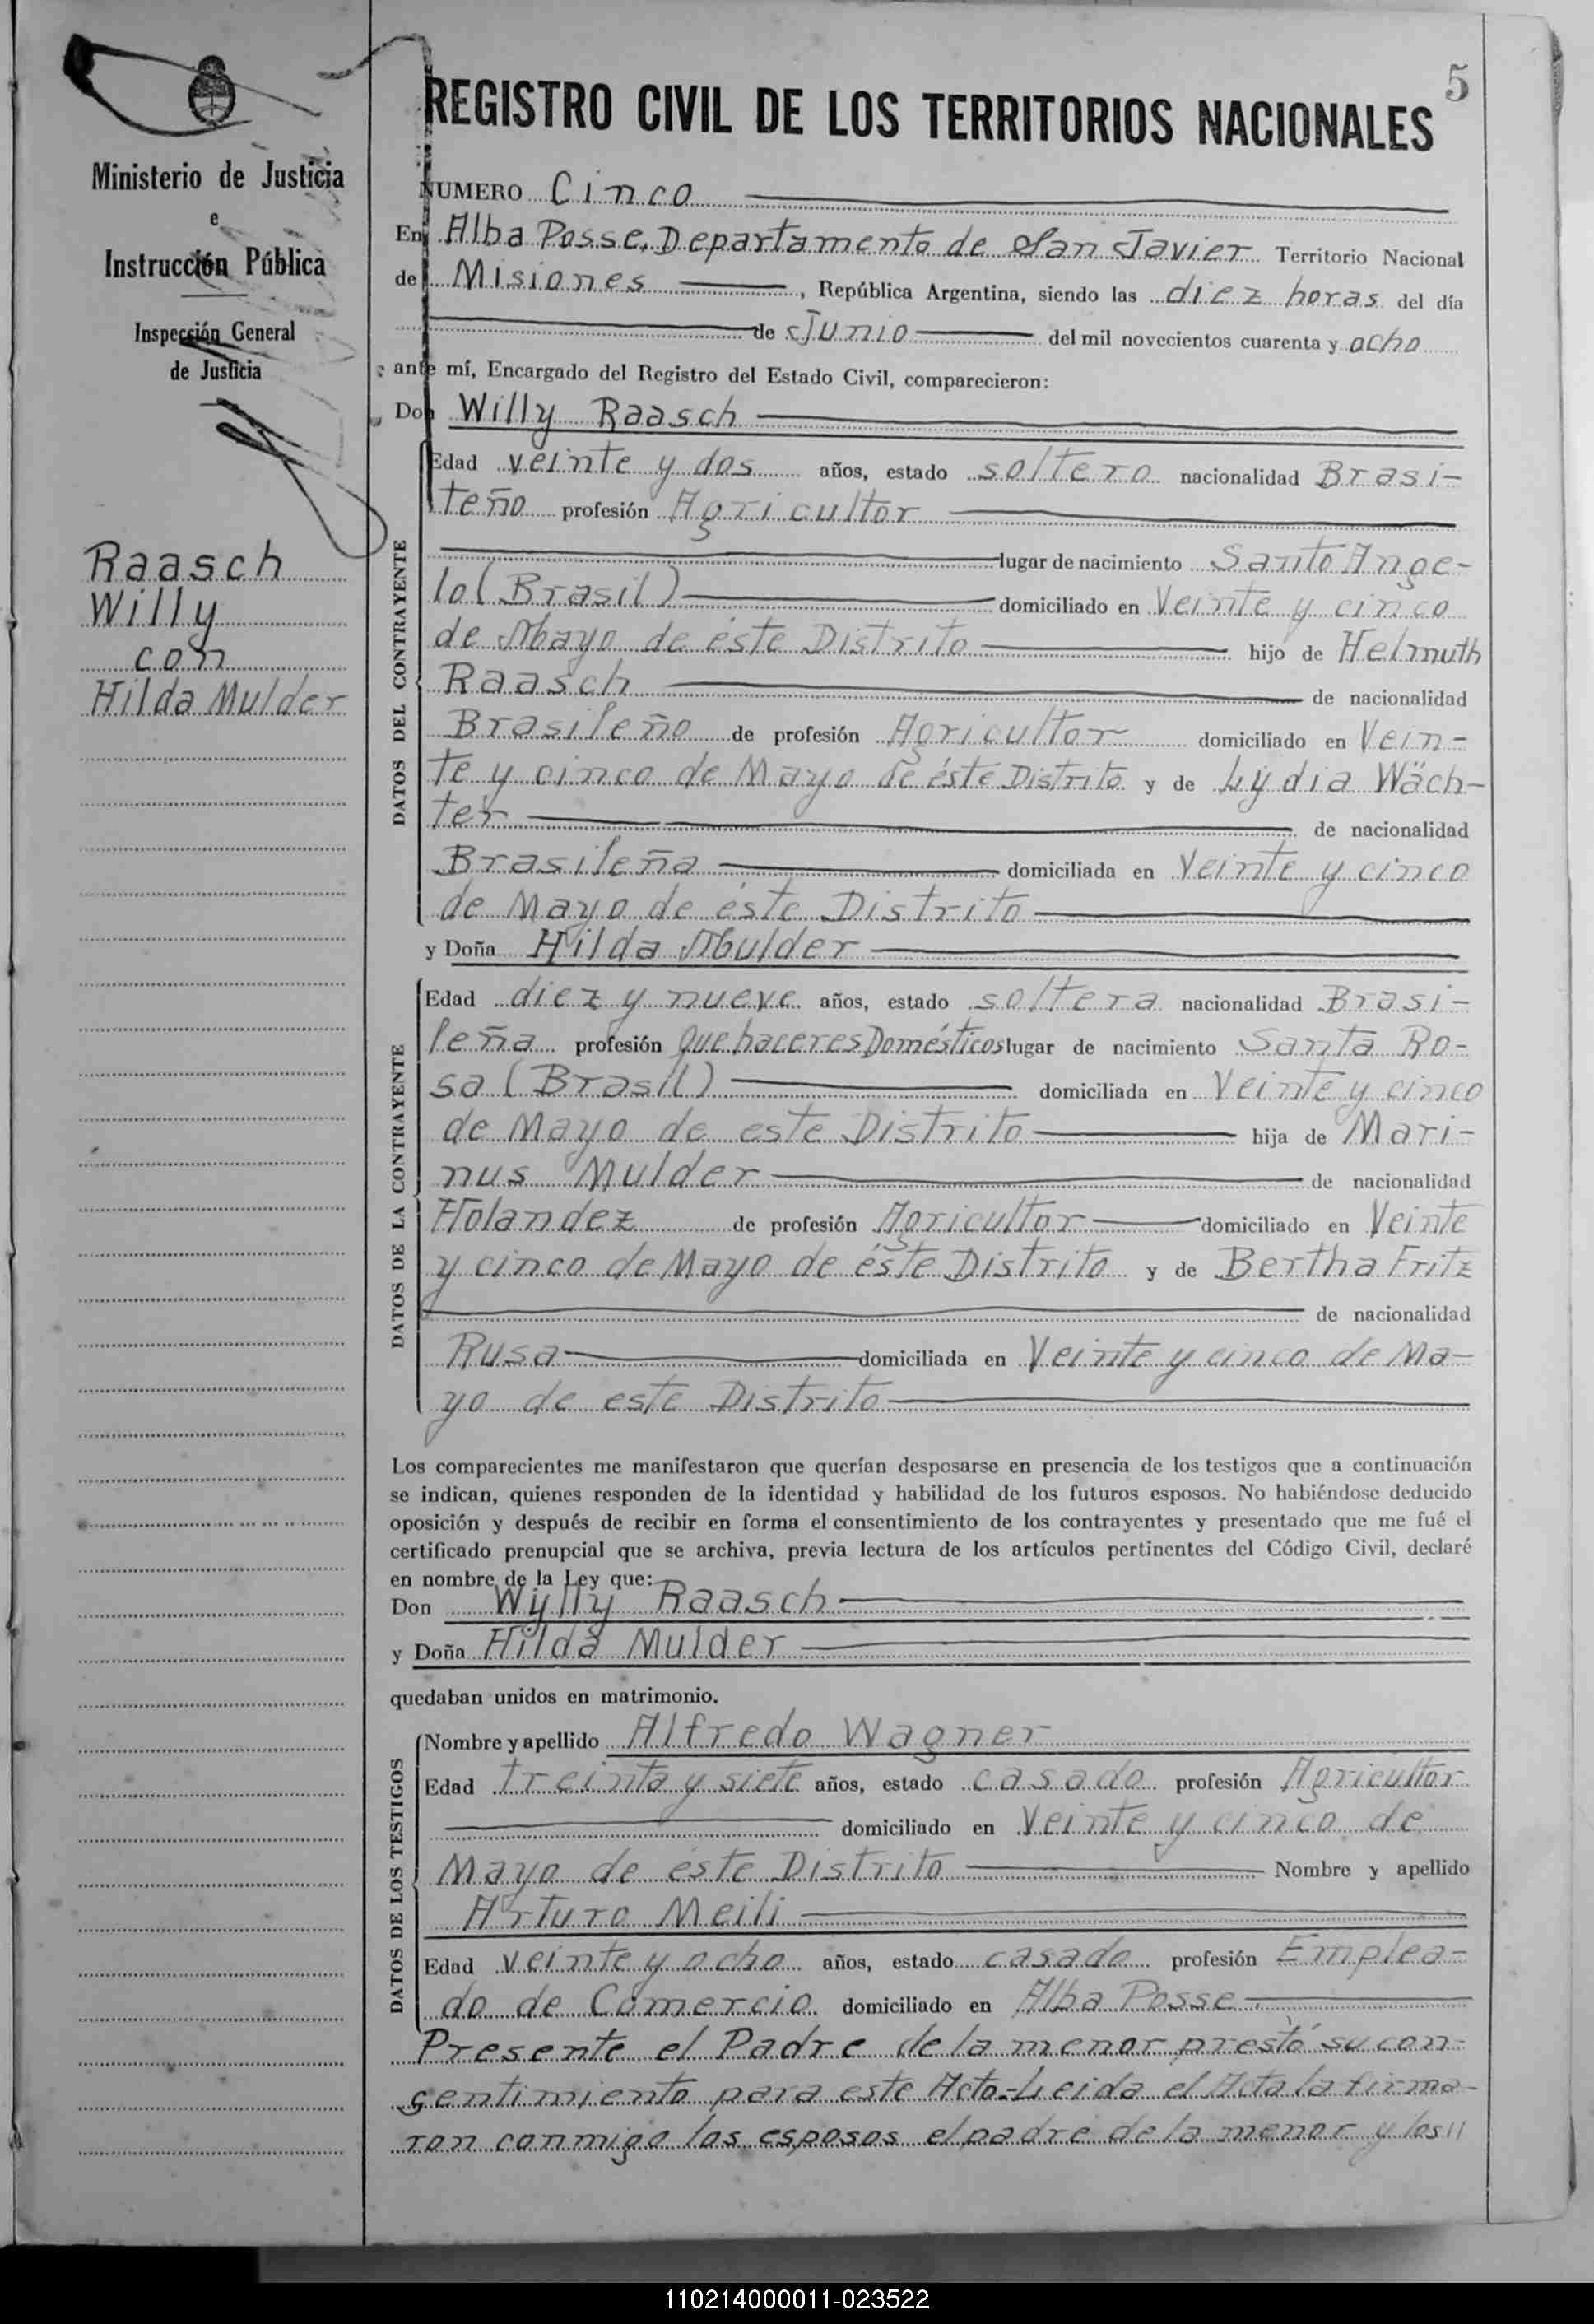 5
REGISTRO CIVIL DE LOS TERRITORIOS NACIONALES
Ministerio de Justicia
e
Instrucción Pública
Inspección General
de Justicia
Raasch
Willy
con
Hilda Mulder
NUMERO Cinco
En Alba Posse, Departamento de San Javier Territorio Nacional
de Misiones, República Argentina, siendo las diez horas del día
de Junio del mil novecientos cuarenta y ocho
ante mí, Encargado del Registro del Estado Civil, comparecieron:
Don Willy Raasch
DATOS DEL CONTRAYENTE
Edad veinte y dos años, estado soltero nacionalidad Brasi-
leño profesión Agricultor
lugar de nacimiento Santo Ange-
lo (Brasil) domiciliado en Veinte y cinco
de Mayo de éste Distrito hijo de Helmuth
Raasch de nacionalidad
Brasileño de profesión Agricultor domiciliado en Vein-
te y cinco de Mayo de éste Distrito y de Lydia Wäch-
ter de nacionalidad
Brasileña domiciliada en Veinte y cinco
de Mayo de éste Distrito
y Doña Hilda Mulder
DATOS DE LA CONTRAYENTE
Edad diez y nueve años, estado soltera nacionalidad Brasi-
leña profesión Quehaceres Domésticos lugar de nacimiento Santa Ro-
sa (Brasil) domiciliada en Veinte y cinco
de Mayo de este Distrito hija de Mari-
nus Mulder de nacionalidad
Holandez de profesión Agricultor domiciliado en Veinte
y cinco de Mayo de éste Distrito y de Bertha Fritz
de nacionalidad
Rusa domiciliada en Veinte y cinco de Ma-
yo de este Distrito
Los comparecientes me manifestaron que querían desposarse en presencia de los testigos que a continuación
se indican, quienes responden de la identidad y habilidad de los futuros esposos. No habiéndose deducido
oposición y después de recibir en forma el consentimiento de los contrayentes y presentado que me fué el
certificado prenupcial que se archiva, previa lectura de los artículos pertinentes del Código Civil, declaré
en nombre de la Ley que:
Don Wylly Raasch
y Doña Hilda Mulder
quedaban unidos en matrimonio.
DATOS DE LOS TESTIGOS
Nombre y apellido Alfredo Wagner
Edad treinta y siete años, estado casado profesión Agricultor
domiciliado en Veinte y cinco de
Mayo de éste Distrito Nombre y apellido
Arturo Meili
Edad veinte y ocho años, estado casado profesión Emplea-
do de Comercio domiciliado en Alba Posse
Presente el Padre de la menor prestó su con-
sentimiento para este Acto-Leida el Acta la firma-
ron conmigo los esposos el padre de la menor y los//
110214000011-023522